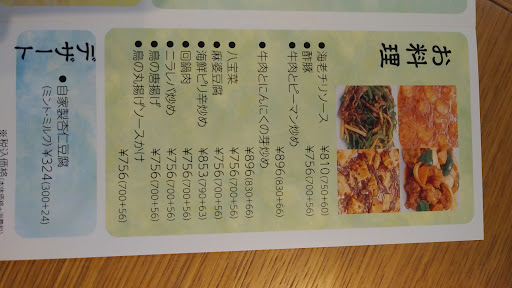 お料理
・海老チリソース ¥810(750+60)
・酢豚 ¥756(700+56)
・牛肉とピーマン炒め ¥896(830+66)
・牛肉とにんにくの芽炒め ¥896(830+66)
・八宝菜 ¥896(830+66)
・麻婆豆腐 ¥756(700+56)
・海鮮ピリ辛炒め ¥853(790+63)
・回鍋肉 ¥756(700+56)
・ニラレバ炒め ¥756(700+56)
・鳥の唐揚げ ¥756(700+56)
・鳥の丸揚げソースかけ ¥756(700+56)
デザート
・自家製杏仁豆腐
(ミント・ミルク) ¥324(300+24)
※税込価格